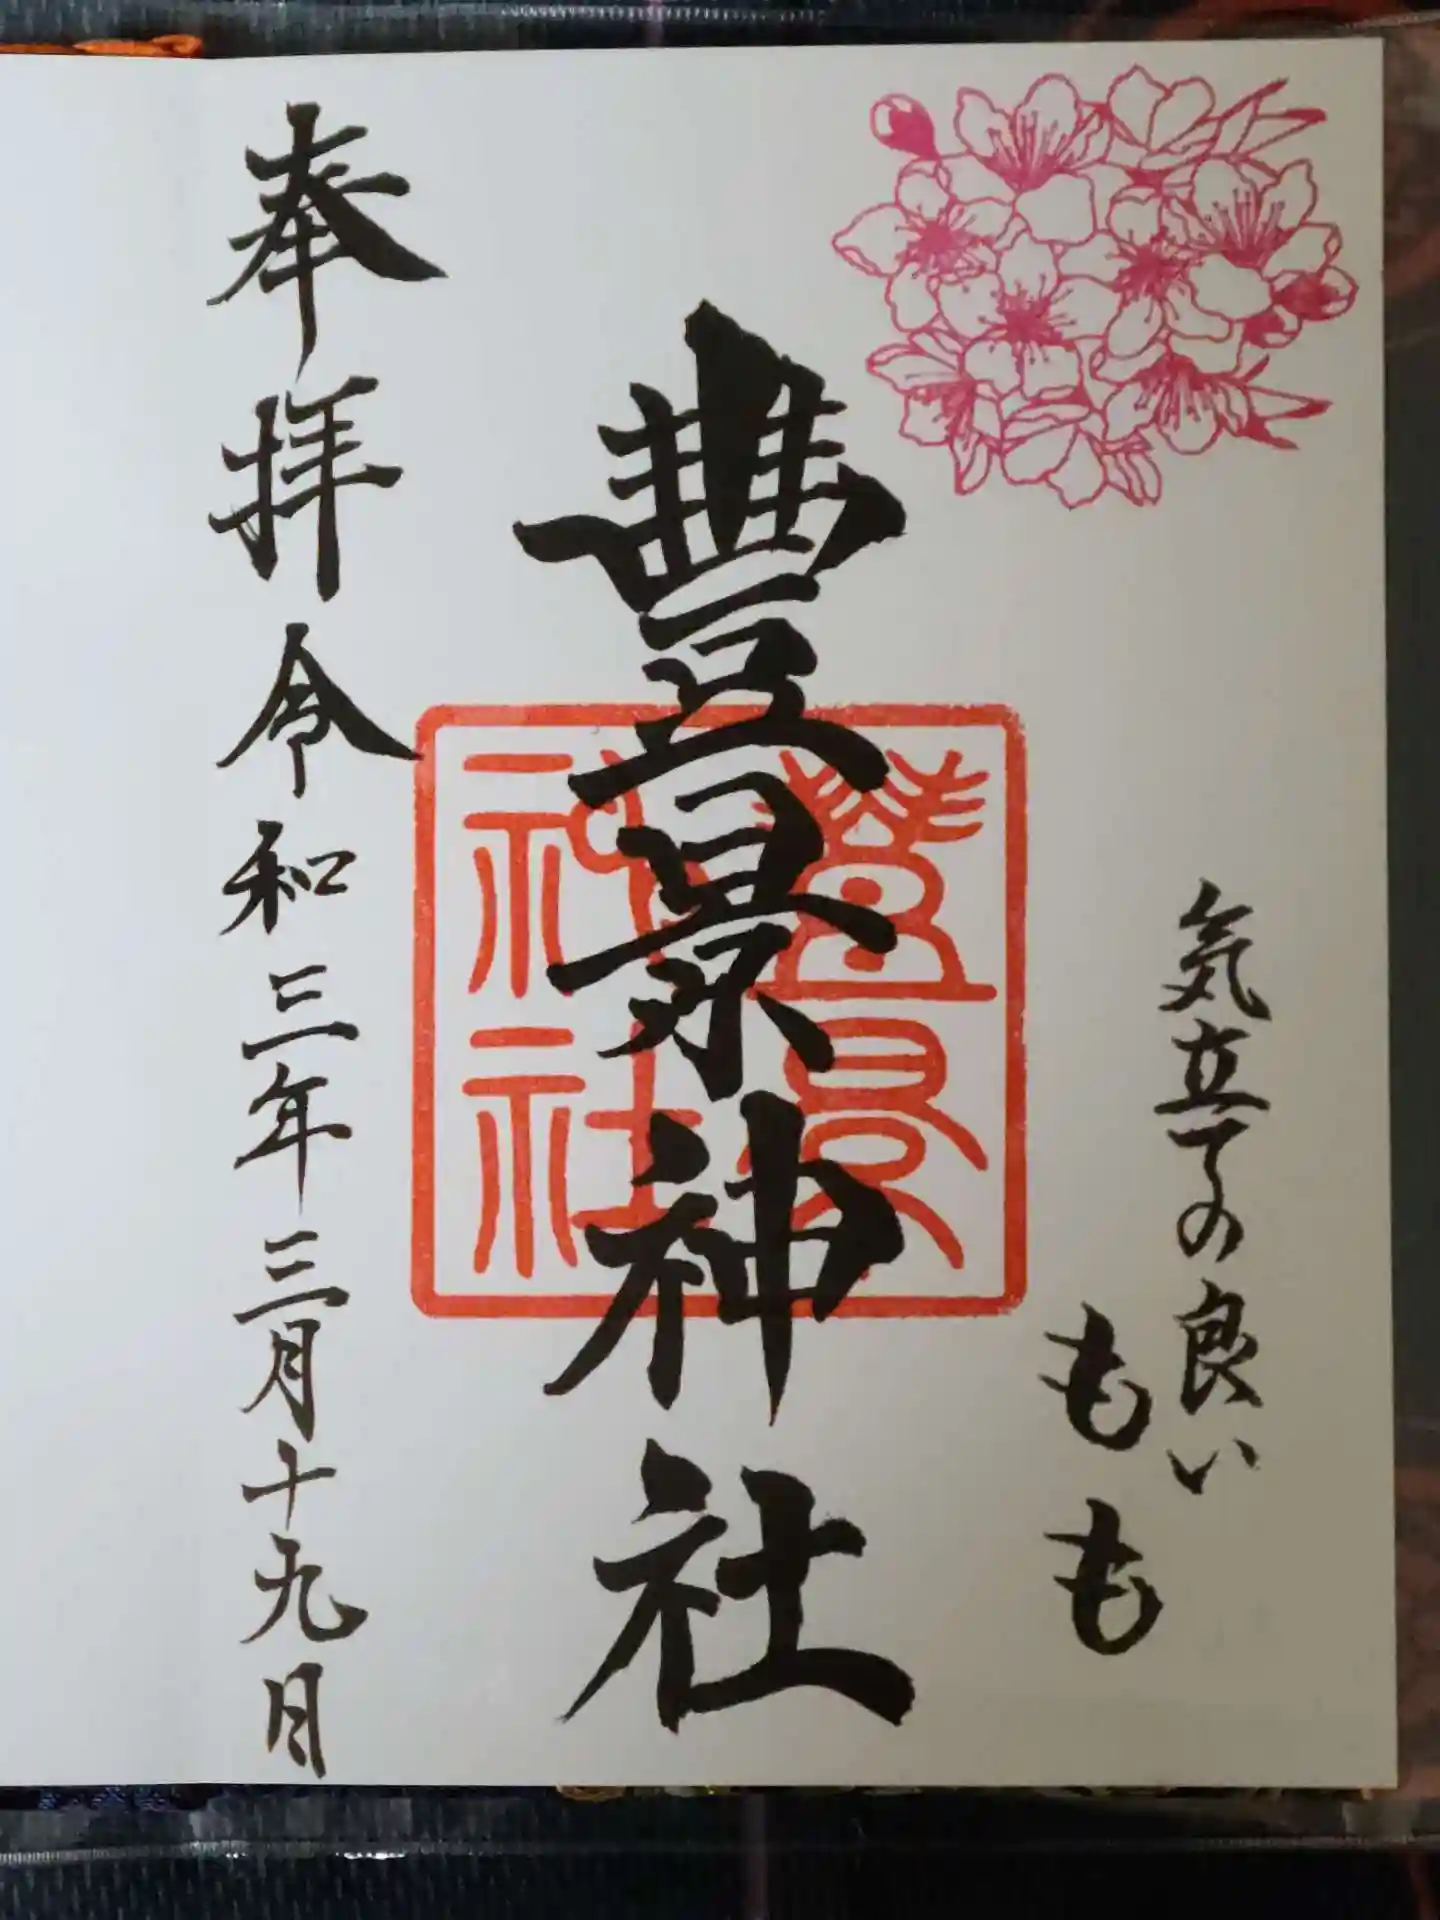 気立ての良い
もも
豊景神社
豊景
神社
奉拝
令和三年三月十九日